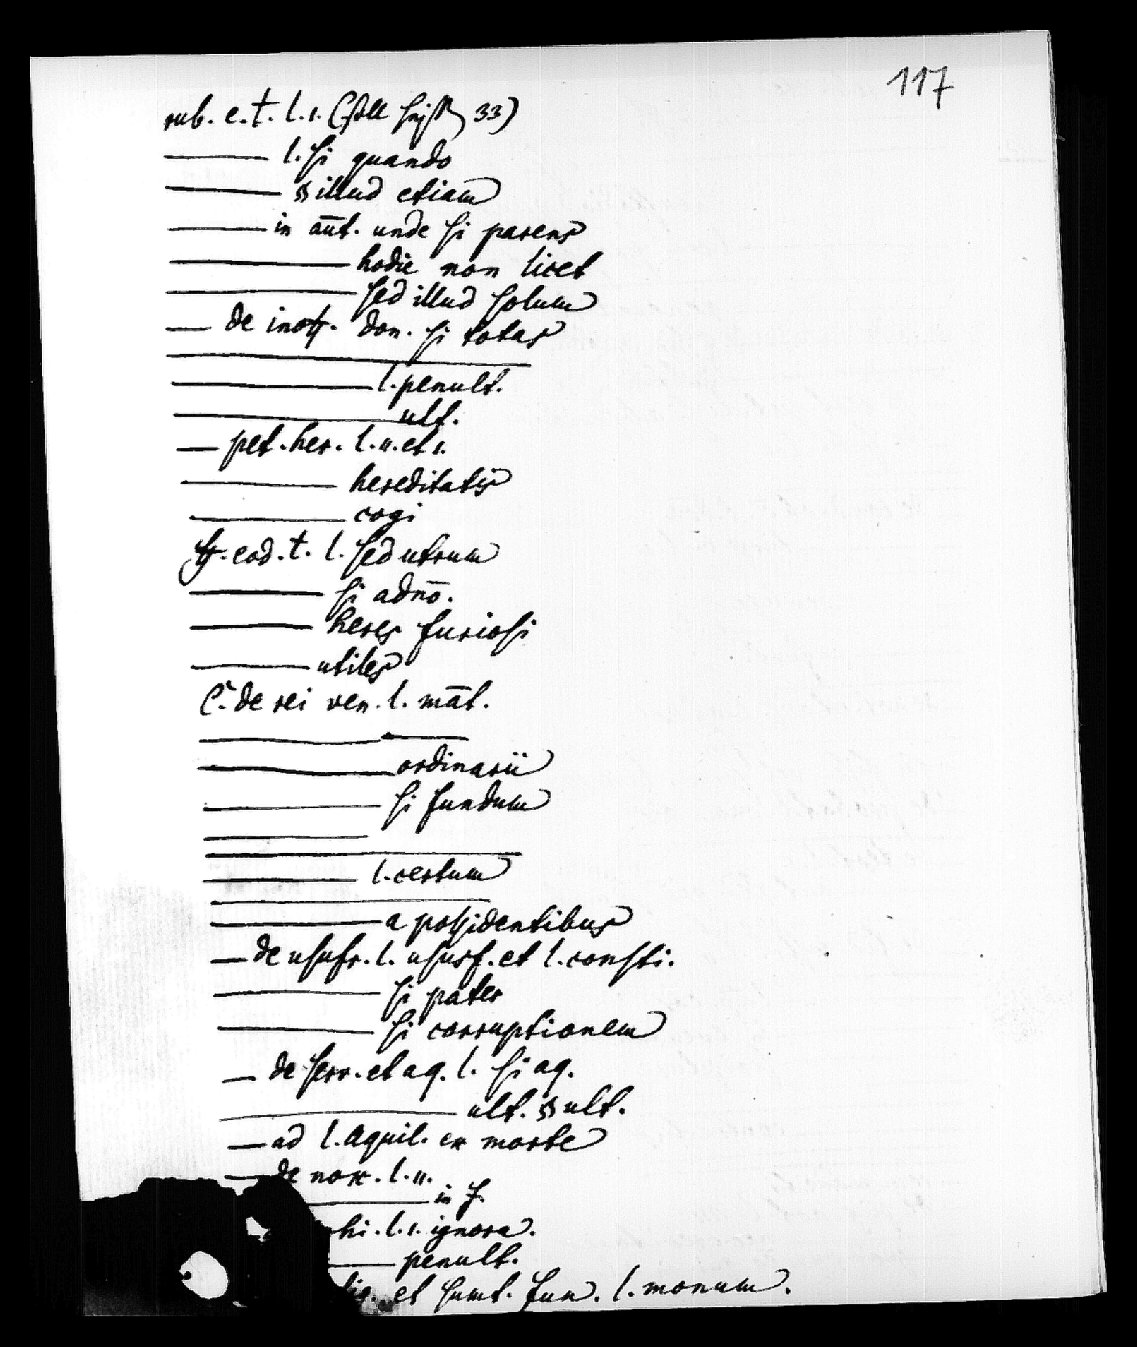 117
sub. e. t. l. 1. ( 33)
l. si quando
§ illud etiam
in aūt. unde si parens
hodie non licet
sed illud solum
de inoff. don. si totas
l. penult.
ult.
pet. her. l. 11. et 1.
hereditatis
cogi
ff. eod. t. l. sed utrum
si adnō.
heres furiosi
utiles
C. de rei ven. l. māt.
ordinarii
si fundum
l. certum
a possidentibus
de usufr. l. ususf. et l. consti.
si pater
si corruptionem
de serv. et aq. l. si aq.
ult. § ult.
ad l. aquil. ex morte
de nox. l. 11.
in f.
l. 1. ignora.
penult.
et sumt. fun. l. monum.